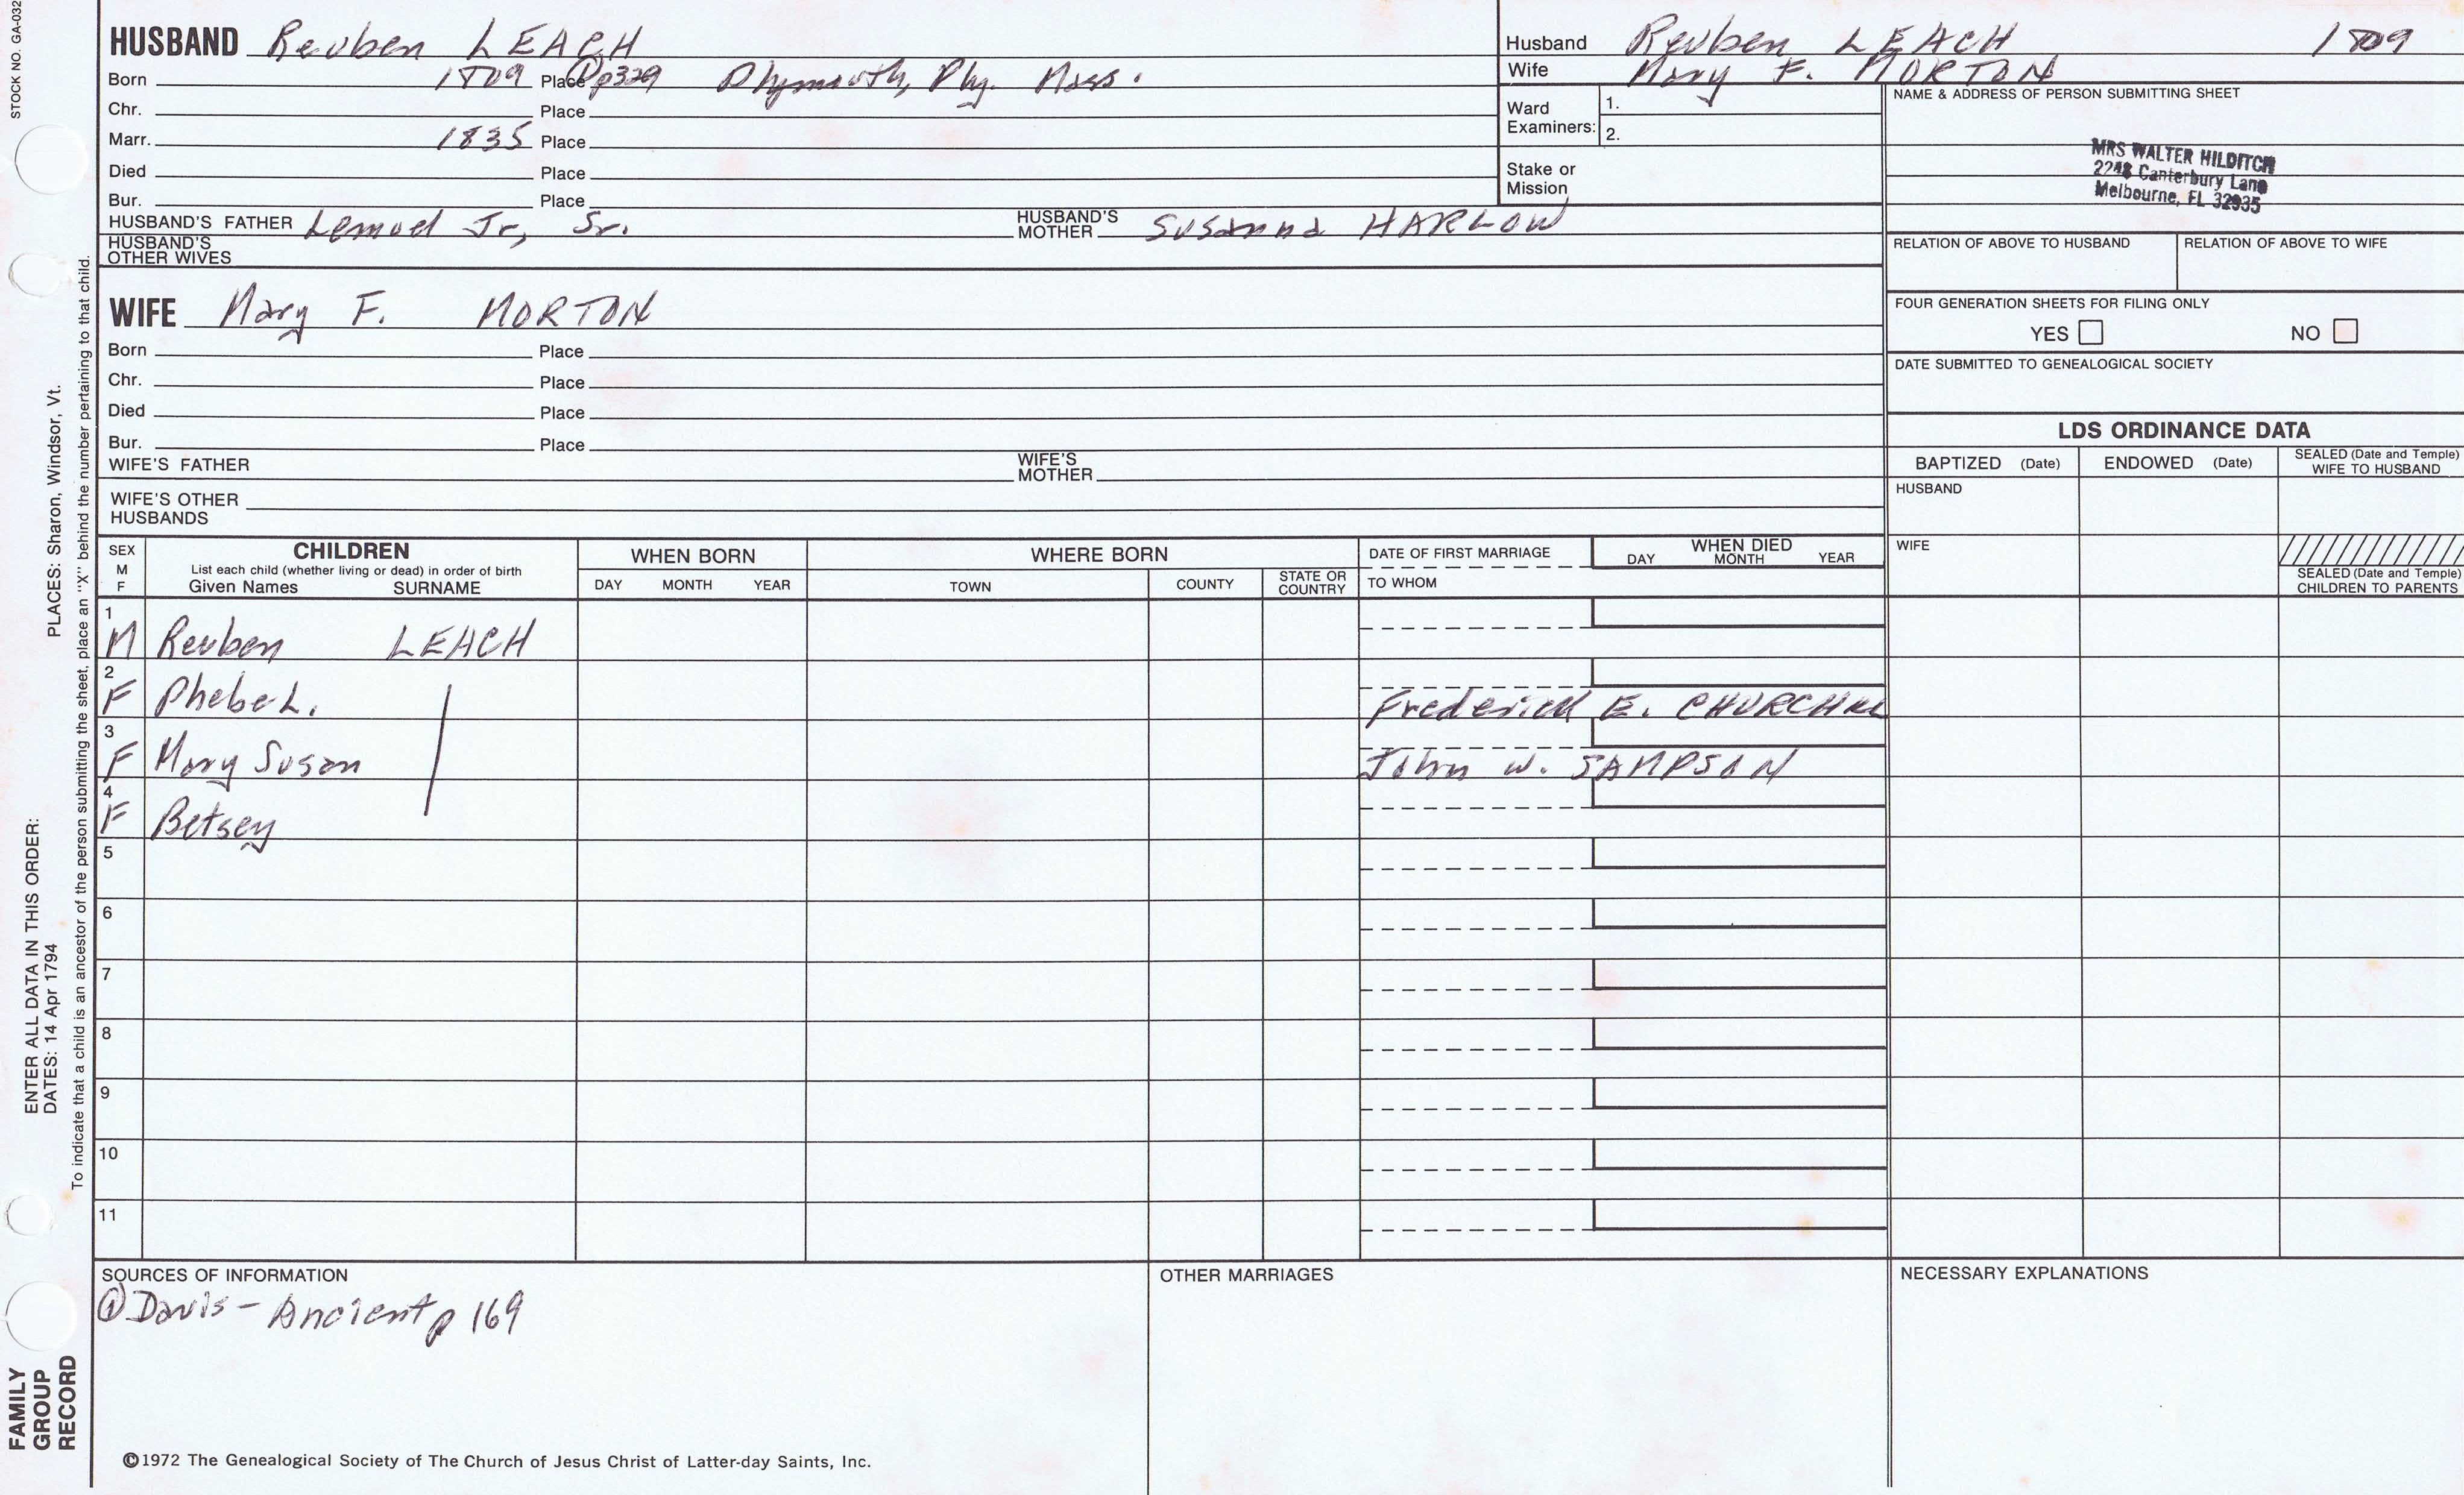 STOCK NO. GA-032
HUSBAND Reuben LEACH
Born 1809 Place ① p329 Plymouth, Ply. Mass.
Chr. Place
Marr. 1835 Place
Died Place
Bur. Place
HUSBAND'S FATHER Lemuel Jr, Sr. HUSBAND'S MOTHER Susanna HARLOW
HUSBAND'S OTHER WIVES
Husband Reuben LEACH 1809
Wife Mary F. MORTON
Ward Examiners: 1.
2.
Stake or Mission
NAME & ADDRESS OF PERSON SUBMITTING SHEET
MRS WALTER HILDITCH
2248 Canterbury Lane
Melbourne, FL 32935
RELATION OF ABOVE TO HUSBAND RELATION OF ABOVE TO WIFE
FOUR GENERATION SHEETS FOR FILING ONLY
YES NO
DATE SUBMITTED TO GENEALOGICAL SOCIETY
WIFE Mary F. MORTON
Born Place
Chr. Place
Died Place
Bur. Place
WIFE'S FATHER WIFE'S MOTHER
WIFE'S OTHER HUSBANDS
LDS ORDINANCE DATA
BAPTIZED (Date) ENDOWED (Date) SEALED (Date and Temple) WIFE TO HUSBAND
HUSBAND
WIFE
SEALED (Date and Temple) CHILDREN TO PARENTS
SEX M F
CHILDREN
List each child (whether living or dead) in order of birth
Given Names SURNAME
WHEN BORN
DAY MONTH YEAR
WHERE BORN
TOWN COUNTY STATE OR COUNTRY
DATE OF FIRST MARRIAGE
TO WHOM
WHEN DIED
DAY MONTH YEAR
1 M Reuben LEACH
2 F Phebe L. Frederick E. CHURCHILL
3 F Mary Susan John W. SAMPSON
4 F Betsey
5
6
7
8
9
10
11
SOURCES OF INFORMATION
① Davis - Ancient p 169
OTHER MARRIAGES
NECESSARY EXPLANATIONS
©1972 The Genealogical Society of The Church of Jesus Christ of Latter-day Saints, Inc.
ENTER ALL DATA IN THIS ORDER:
DATES: 14 Apr 1794 PLACES: Sharon, Windsor, Vt.
To indicate that a child is an ancestor of the person submitting the sheet, place an "X" behind the number pertaining to that child.
FAMILY
GROUP
RECORD